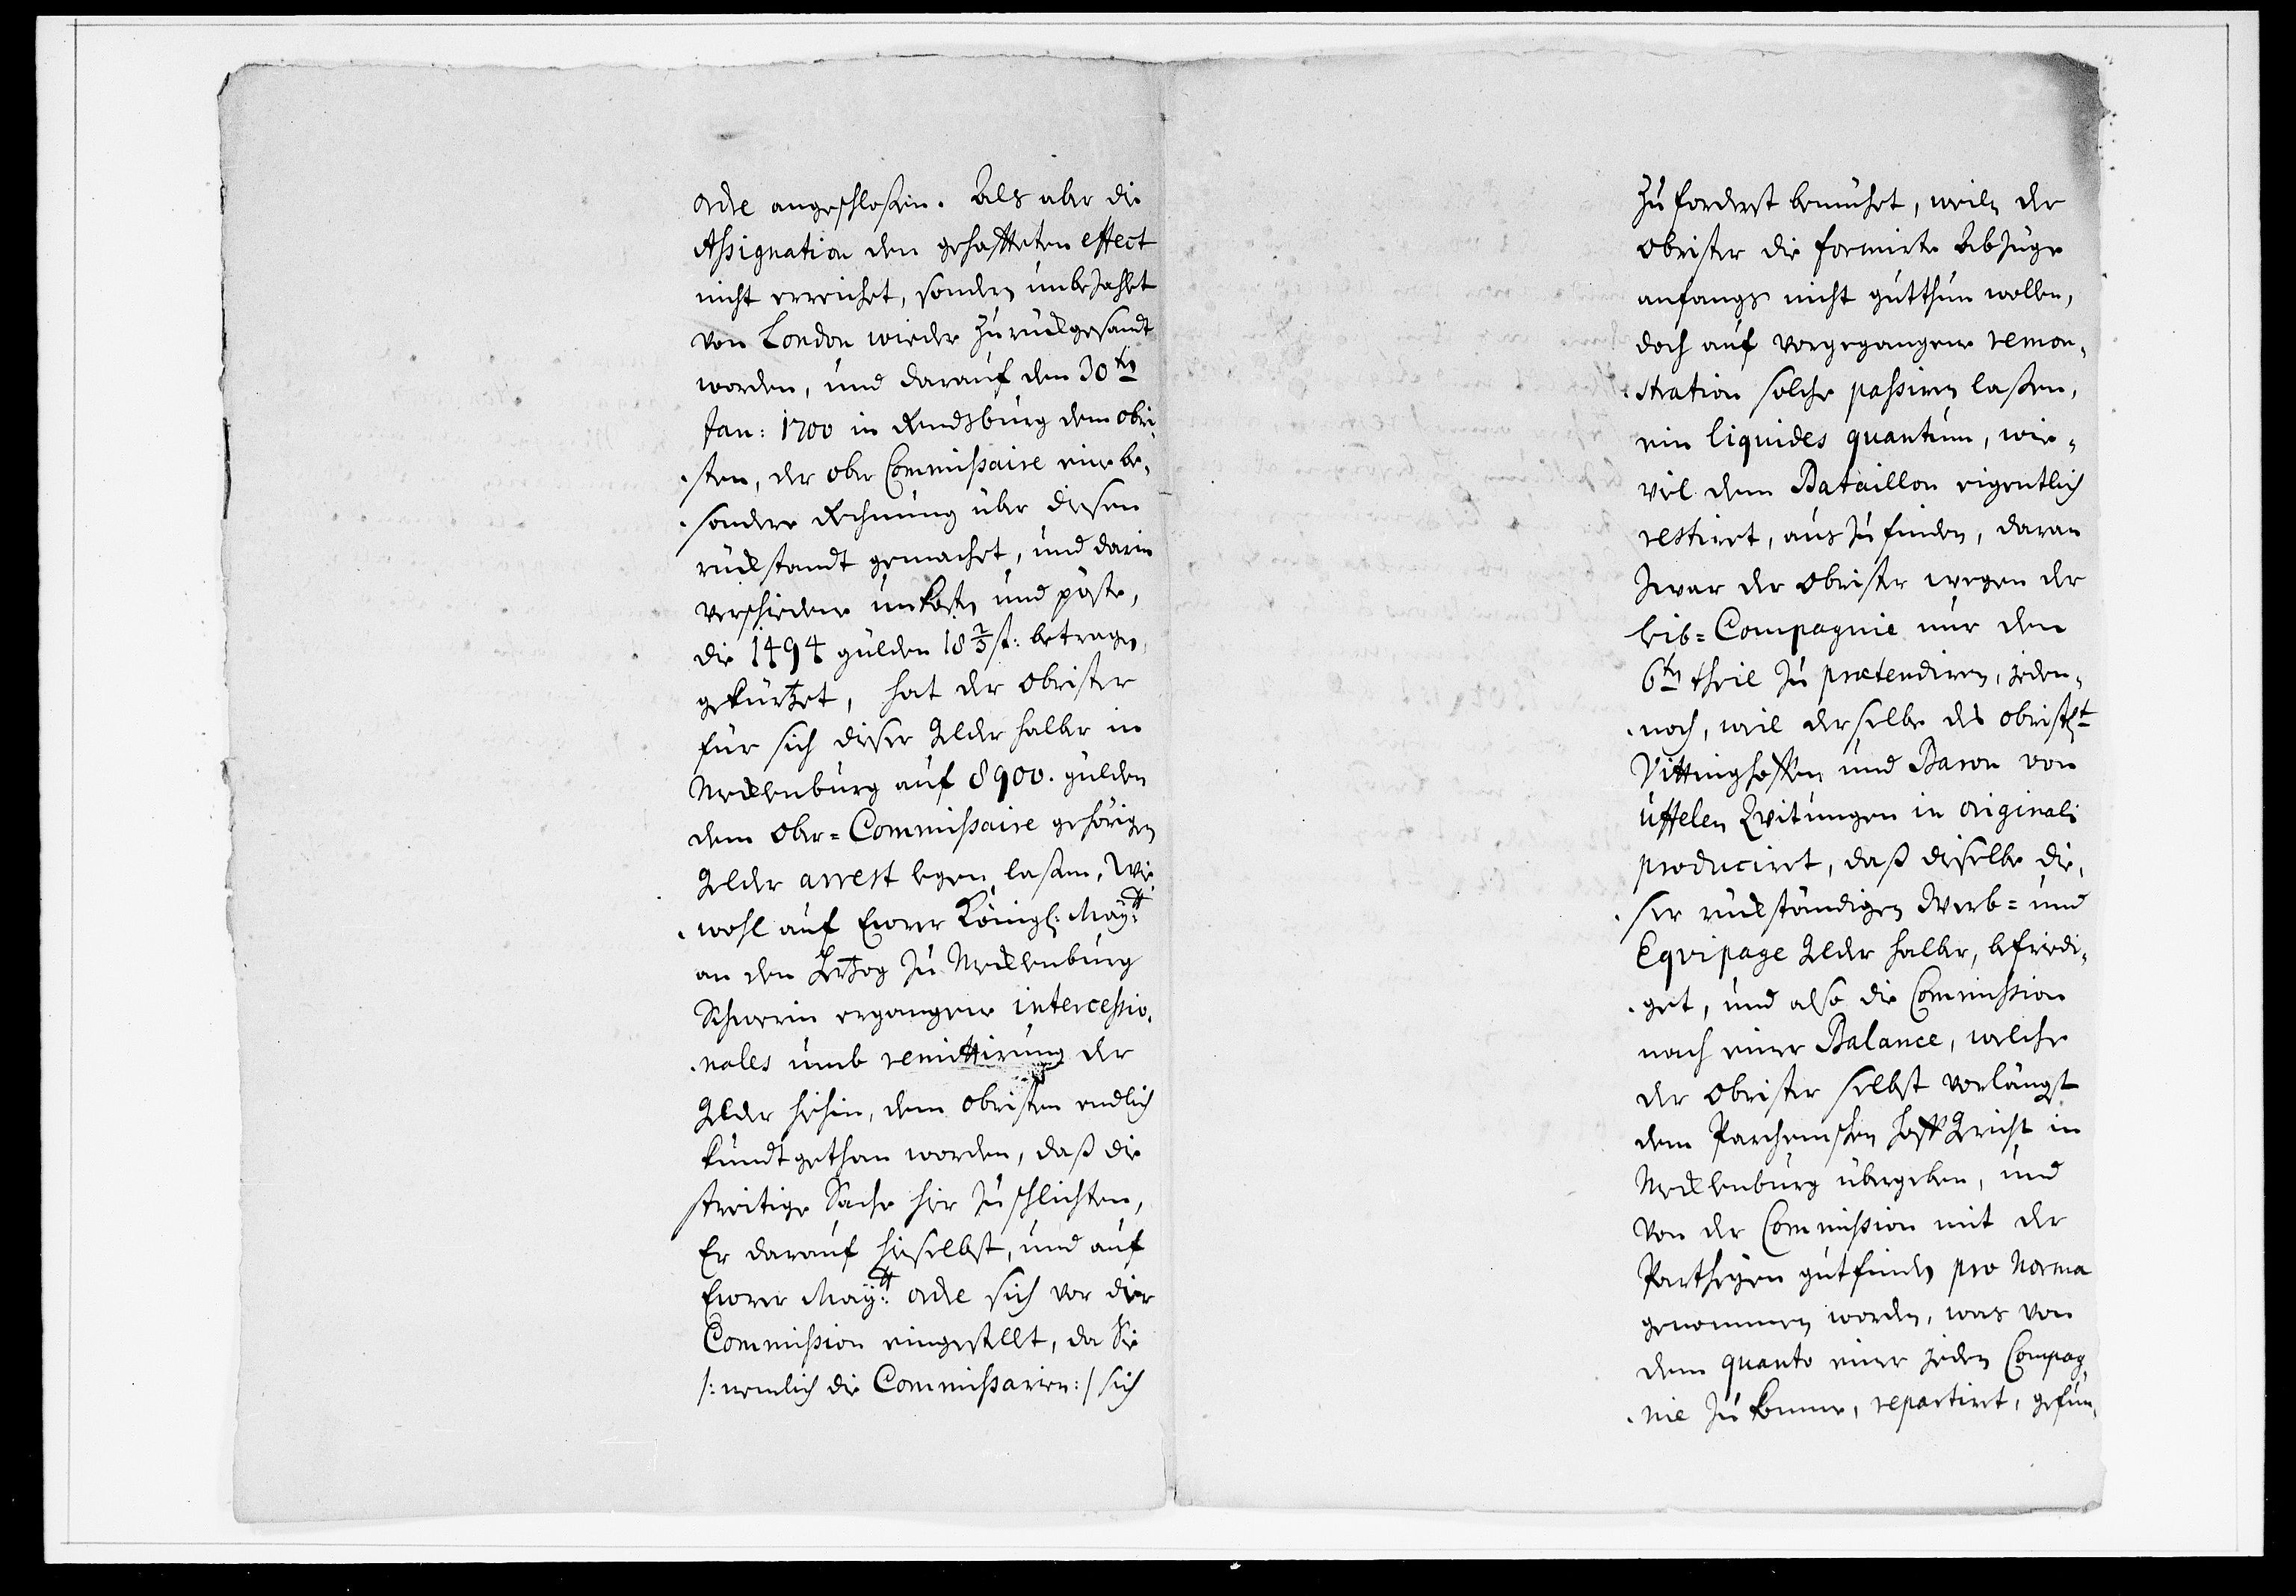 ordre angeschloßen. Als aber die
Assignation den gehoffeten effect
nicht erreichet, sondern unbezahlet
von London wieder zurückgesandt
worden, und darauf den 30ten
Jan: 1700 in Rendsburg dem Obri-
sten, der Ober Commissaire eine be-
sondere Rechnung über diesen
rückstandt gemachet, und darin
verschiedene unkosten und pöste,
die 1494 gülden 18 2/3 st: betragen,
gekürtzet, hat der Obrister
für sich dieser Gelder halber in
Mecklenburg auf 8900. gülden
dem Ober-Commissaire gehörigen
Gelder arrest legen laßen, Wie-
wohl auf Eurer Königl: Mayᵗᵗ:
an den Hertzog zu Mecklenburg
Schwerin ergangene intercessio-
nales umb remittirung der
Gelder hiehin, dem Obristen endlich
kundt gethan worden, daß die
streitige Sache hier zu schlichten,
Er darauf hieselbst, und auf
Eurer Mayᵗᵗ: ordre sich vor die
Commission eingestellt, da Sie
/: nemlich die Commissarien :/ sich
zuforderst bemühet, weiln der
Obrister die formirte Abzüge
anfangs nicht gutthun wollen,
doch auf vorgegangene remon-
stration solche passiren laßen,
ein liquides quantum, wie-
viel dem Bataillon eigentlich
restiret, auszufinden, daran
zwar der Obrister wegen der
Leib-Compagnie nur den
6ten theil zu prætendiren, jeden-
noch, weil derselbe des Obristlt
Vittinghoffen und Baron von
Uffelen Qvitungen in originali
produciret, daß dieselbe die-
ser rückständigen Werb- und
Eqvipage Gelder halber, befriedi-
get, und also die Commission
nach einer Balance, welche
der Obrister selbst vorlängst
dem Parchimschen Hoff Gericht in
Mecklenburg übergeben, und
von der Commission mit der
Partheyen gutfinden pro Norma
genommen worden, was von
dem quanto einer jeden Compag-
nie zu komme, repartiret, gefun-